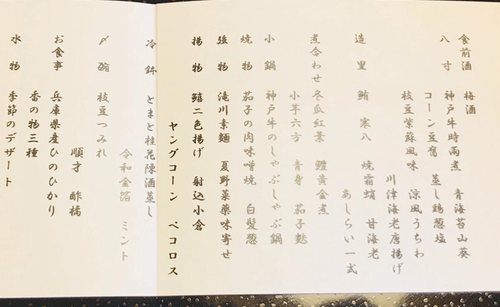 食前酒 梅酒
八寸 神戸牛時雨煮 青海苔山葵
コーン豆腐 蒸し鶏葱塩
枝豆紫蘇風味 涼風うちわ
川津海老唐揚げ
造里 鮪 寒八 焼霜蛸 甘海老
あしらい一式
煮合わせ 冬瓜紅葉 鱧黄金煮
小芋六方 青身 茄子麩
小鍋 神戸牛のしゃぶしゃぶ鍋
焼物 茄子の肉味噌焼 白髪葱
強物 滝川素麺 夏野菜薬味寄せ
揚物 鱚二色揚げ 射込小倉
ヤングコーン ペコロス
冷鉢 とまと桂花陳酒蒸し
令和金箔 ミント
〆碗 枝豆つみれ
順才 酢橘
お食事 兵庫県産ひのひかり
香の物三種
水物 季節のデザート